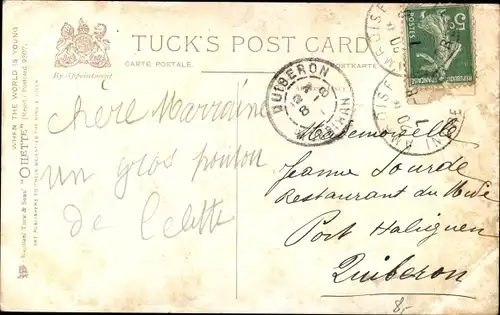 TUCK'S POST CARD
CARTE POSTALE.
By Appointment
WHEN THE WORLD IS YOUNG
"OILETTE" (Regd.) Postcard 9207.
Raphael Tuck & Sons'
ART PUBLISHERS TO THEIR MAJESTIES THE KING & QUEEN
chère Marraine
un gros
de Lolotte
Mademoiselle
Jeanne Lourde
Restaurant du Midi
Port Haliguen
Quiberon
QUIBERON
5c
FRANÇAISE
8,-